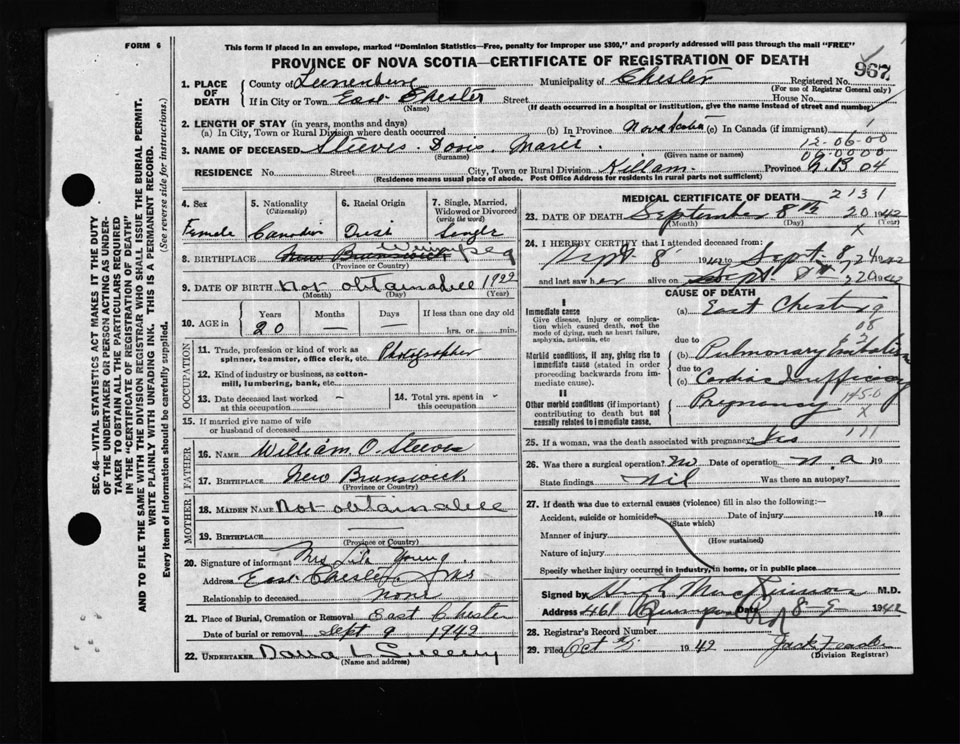 FORM 6
This form if placed in an envelope, marked "Dominion Statistics—Free, penalty for improper use $300," and properly addressed will pass through the mail "FREE"
PROVINCE OF NOVA SCOTIA—CERTIFICATE OF REGISTRATION OF DEATH
967
1. PLACE OF DEATH
County of Lunenburg Municipality of Chester Registered No.
(For use of Registrar General only)
If in City or Town East Chester Street House No.
(Name) (If death occurred in a hospital or institution, give the name instead of street and number)
2. LENGTH OF STAY (in years, months and days)
(a) In City, Town or Rural Division where death occurred (b) In Province Nova Scotia (c) In Canada (if immigrant)
3. NAME OF DECEASED Steeves Doris Marie
(Surname) (Given name or names)
RESIDENCE No. Street City, Town or Rural Division Killam Province N.B 04
(Residence means usual place of abode. Post Office Address for residents in rural parts not sufficient)
4. Sex Female
5. Nationality (Citizenship) Canadian
6. Racial Origin
7. Single, Married, Widowed or Divorced (write the word) Single
8. BIRTHPLACE New Brunswick
(Province or Country)
9. DATE OF BIRTH Not obtainable 1922
(Month) (Day) (Year)
10. AGE in Years 20 Months — Days — If less than one day old
hrs. or min.
OCCUPATION
11. Trade, profession or kind of work as spinner, teamster, office clerk, etc. Photographer
12. Kind of industry or business, as cotton-mill, lumbering, bank, etc.
13. Date deceased last worked at this occupation
14. Total yrs. spent in this occupation
15. If married give name of wife or husband of deceased
FATHER
16. NAME William O. Steeves
17. BIRTHPLACE New Brunswick
(Province or Country)
MOTHER
18. MAIDEN NAME Not obtainable
19. BIRTHPLACE
(Province or Country)
20. Signature of informant Mrs Young
Address East Chester NS
Relationship to deceased none
21. Place of Burial, Cremation or Removal East Chester
Date of burial or removal Sept 9 1942
22. UNDERTAKER
(Name and address)
MEDICAL CERTIFICATE OF DEATH
2131
23. DATE OF DEATH September 8th 20 1942
(Month) (Day) (Year)
24. I HEREBY CERTIFY that I attended deceased from:
Sept 8 1942 to Sept 8 1942
and last saw her alive on Sept 8th 1942
CAUSE OF DEATH
I
Immediate cause
Give disease, injury or complication which caused death, not the mode of dying, such as heart failure, asphyxia, asthenia, etc
(a) East Chester
due to
Morbid conditions, if any, giving rise to immediate cause (stated in order proceeding backwards from immediate cause).
(b) Pulmonary
due to
(c) Cardiac Insufficiency
II
Other morbid conditions (if important) contributing to death but not causally related to immediate cause.
Pregnancy
25. If a woman, was the death associated with pregnancy? Yes
26. Was there a surgical operation? No Date of operation n.a 19
State findings Nil Was there an autopsy?
27. If death was due to external causes (violence) fill in also the following:—
Accident, suicide or homicide? Date of injury 19
(State which)
Manner of injury
(How sustained)
Nature of injury
Specify whether injury occurred in industry, in home, or in public place
Signed by M.D.
Address 461 Date 8-9 1942
28. Registrar's Record Number
29. Filed Oct 1942
(Division Registrar)
SEC. 46—VITAL STATISTICS ACT MAKES IT THE DUTY OF THE UNDERTAKER OR PERSON ACTING AS UNDERTAKER TO OBTAIN ALL THE PARTICULARS REQUIRED IN THE "CERTIFICATE OF REGISTRATION OF DEATH" AND TO FILE THE SAME WITH THE DIVISION REGISTRAR WHO SHALL ISSUE THE BURIAL PERMIT.
WRITE PLAINLY WITH UNFADING INK. THIS IS A PERMANENT RECORD.
Every item of information should be carefully supplied. (See reverse side for instructions.)